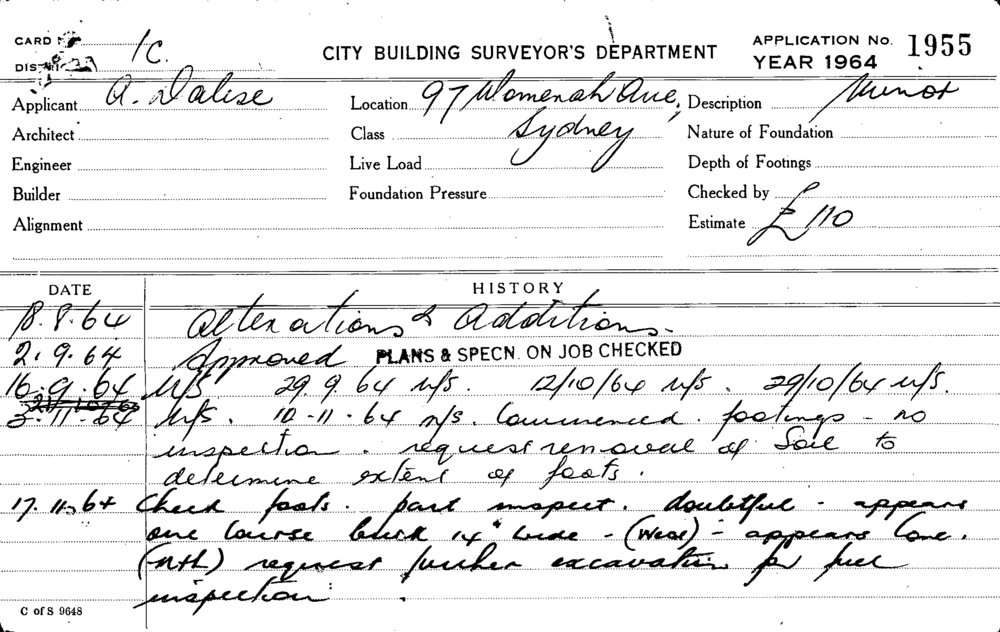 CARD 1C. CITY BUILDING SURVEYOR'S DEPARTMENT APPLICATION No. 1955
DISTRICT YEAR 1964
Applicant A. Dalise Location 97 Womerah Ave, Sydney Description Minor
Architect Class Nature of Foundation
Engineer Live Load Depth of Footings
Builder Foundation Pressure Checked by
Alignment Estimate £110
DATE HISTORY
18.8.64 Alterations & Additions.
2.9.64 Approved PLANS & SPECN. ON JOB CHECKED
16.9.64 N/S 29.9.64 N/S. 12/10/64 N/S. 29/10/64 N/S.
3.11.64 N/S. 10-11-64 N/S. Commenced. footings - no
inspection. request removal of Soil to
determine extent of foots.
17.11.64 Check foots. part inspect. doubtful - appears
one course brick 14" wide - (West) - appears Conc.
(Nth) request further excavation for full
inspection.
C of S 9648